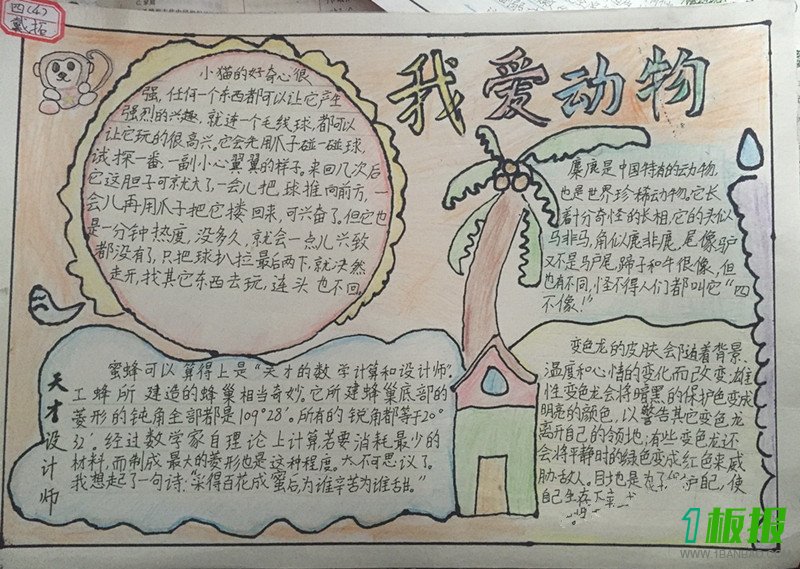 四(4)
戴拓
我爱动物
小猫的好奇心很
强,任何一个东西都可以让它产生
强烈的兴趣,就连一个毛线球,都可以
让它玩的很高兴。它会先用爪子碰一碰球,
试探一番,一副小心翼翼的样子。来回几次后
它这胆子可就大了一会儿把球推向前方,一
会儿再用爪子把它搂回来,可兴奋了。但它也
是一分钟热度,没多久,就会一点儿兴致
都没有了,只把球扒拉最后两下,就决然
走开,找其它东西去玩,连头也不回。
麋鹿是中国特有的动物,
也是世界珍稀动物。它长
着十分奇怪的长相,它的头似
马非马,角似鹿非鹿,尾像驴
又不是马尾,蹄子和牛很像,但
也有不同,怪不得人们都叫它“四
不像!”
天才设计师
蜜蜂可以算得上是“天才的数学计算和设计师”。
工蜂所建造的蜂巢相当奇妙。它所建蜂巢底部的
菱形的钝角全部都是109°28′。所有的锐角都等于20°
32′,经过数学家自理论上计算若要消耗最少的
材料,而制成最大的菱形也是这种程度。太不可思议了。
我想起了一句诗:“采得百花成蜜后为谁辛苦为谁甜。”
变色龙的皮肤会随着背景、
温度和心情的变化而改变;雄
性变色龙会将暗黑的保护色变成
明亮的颜色,以警告其它变色龙
离开自己的领地;有些变色龙还
会将平静时的绿色变成红色来威
胁敌人。目地也是为了护己,使
自己生存下来
1板报
WWW.1BANBAO.COM